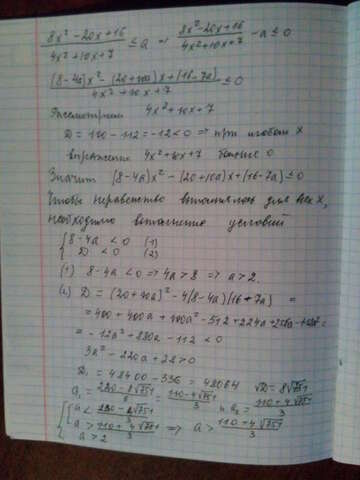 (8x² - 20x + 16)/(4x² + 10x + 7) ≤ a ⇒ (8x² - 20x + 16)/(4x² + 10x + 7) - a ≤ 0
((8-4a)x² - (20+10a)x + (16-7a))/(4x² + 10x + 7) ≤ 0
Рассмотрим 4x² + 10x + 7
D = 100 - 112 = -12 < 0 ⇒ при любом x
выражение 4x² + 10x + 7 больше 0
Значит (8-4a)x² - (20+10a)x + (16-7a) ≤ 0
Чтобы неравенство выполнялось для всех x,
необходимо выполнение условий
{ 8-4a < 0 (1)
{ D < 0 (2)
(1) 8-4a < 0 ⇒ 4a > 8 ⇒ a > 2.
(2) D = (20+10a)² - 4(8-4a)(16-7a) =
= 400 + 400a + 100a² - 512 + 224a + 256a - 112a² =
= -12a² + 880a - 112 < 0
3a² - 220a + 28 > 0
D₁ = 48400 - 336 = 48064 √D = 8√751
a₁ = (220 - 8√751)/6 = (110 - 4√751)/3 и a₂ = (110 + 4√751)/3
{ [ a < (220 - 8√751)/6
{ [ a > (110 + 4√751)/3 ⇒ a > (110 + 4√751)/3
{ a > 2